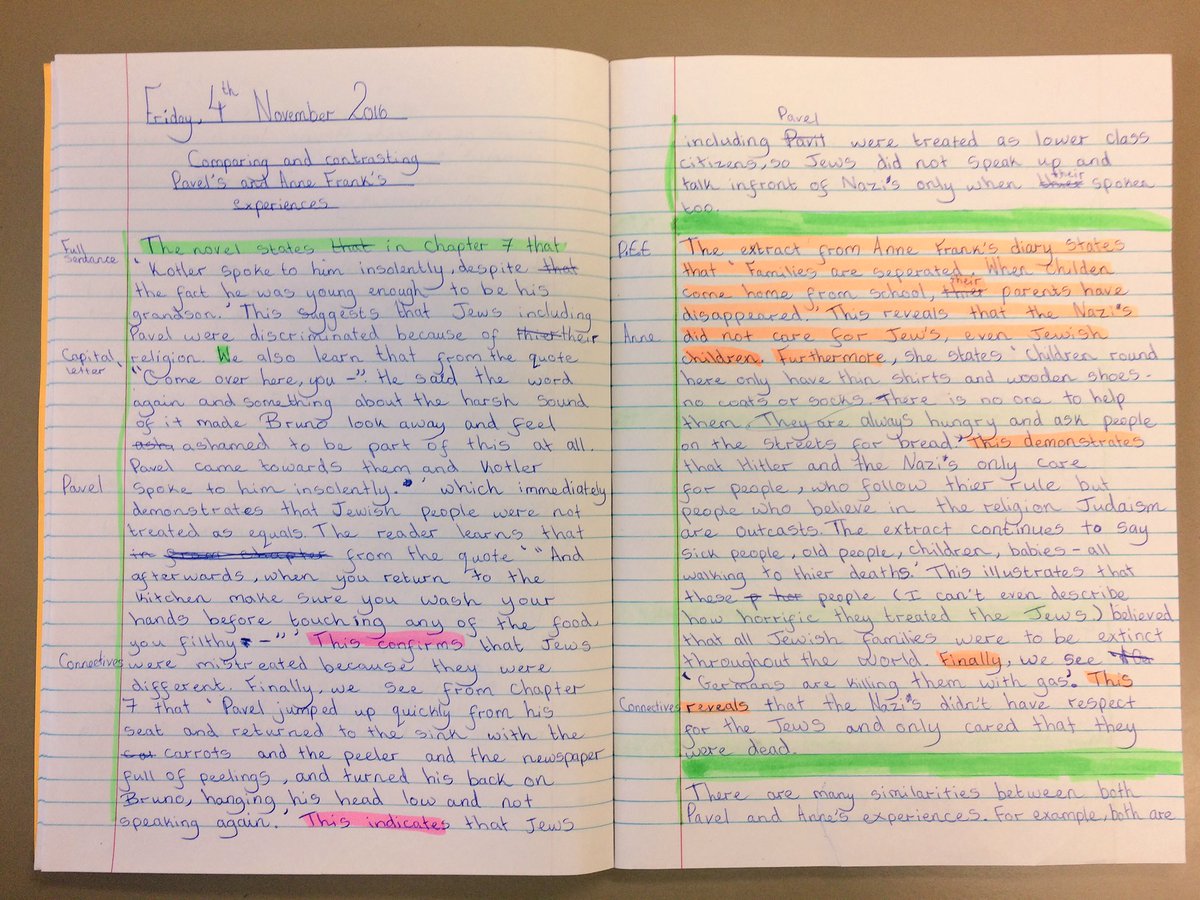 Friday, 4th November 2016
Comparing and contrasting
Pavel's and Anne Frank's
experiences
Full sentance
The novel states that in chapter 7 that
'Kotler spoke to him insolently, despite that
the fact he was young enough to be his
grandson.' This suggests that Jews including
Pavel were discriminated because of thier their
Capital letter
religion. We also learn that from the quote
'"Come over here, you -". He said the word
again and something about the harsh sound
of it made Bruno look away and feel
asha ashamed to be part of this at all.
Pavel came towards them and Kotler
Pavel
spoke to him insolently.' which immediately
demonstrates that Jewish people were not
treated as equals. The reader learns that
in from chapter from the quote '"And
afterwards, when you return to the
kitchen make sure you wash your
hands before touching any of the food,
you filthy -"' This confirms that Jews
Connectives
were mistreated because they were
different. Finally, we see from chapter
7 that 'Pavel jumped up quickly from his
seat and returned to the sink with the
cat carrots and the peeler and the newspaper
full of peelings, and turned his back on
Bruno, hanging his head low and not
speaking again.' This indicates that Jews
Pavel
including Pavil were treated as lower class
citizens, so Jews did not speak up and
talk infront of Nazi's only when thier their spoken
too.
P.E.E
The extract from Anne Frank's diary states
that 'Families are seperated. When childen
come home from school, thier their parents have
disappeared.' This reveals that the Nazi's
Anne
did not care for Jew's, even Jewish
children. Furthermore, she states 'Children round
here only have thin shirts and wooden shoes-
no coats or socks. There is no one to help
them. They are always hungry and ask people
on the streets for bread.' This demonstrates
that Hitler and the Nazi's only care
for people, who follow thier rule but
people who believe in the religion Judaism
are outcasts. The extract continues to say
sick people, old people, children, babies - all
walking to thier deaths.' This illustrates that
these p her people (I can't even describe
how horrific they treated the Jews.) believed
that all Jewish families were to be extinct
throughout the world. Finally, we see
'Germans are killing them with gas'. This
Connectives
reveals that the Nazi's didn't have respect
for the Jews and only cared that they
were dead.
There are many similarities between both
Pavel and Anne's experiences. For example, both are